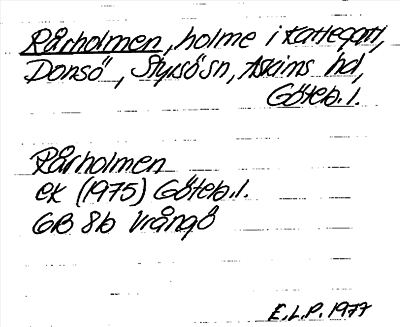 Rårholmen, holme i Kattegatt,
Donsö, Styrsö sn, Askims hd,
Göteb. l.
Rårholmen
ek (1975) Göteb. l.
GB 8b Vrångö
E.L.P. 1977